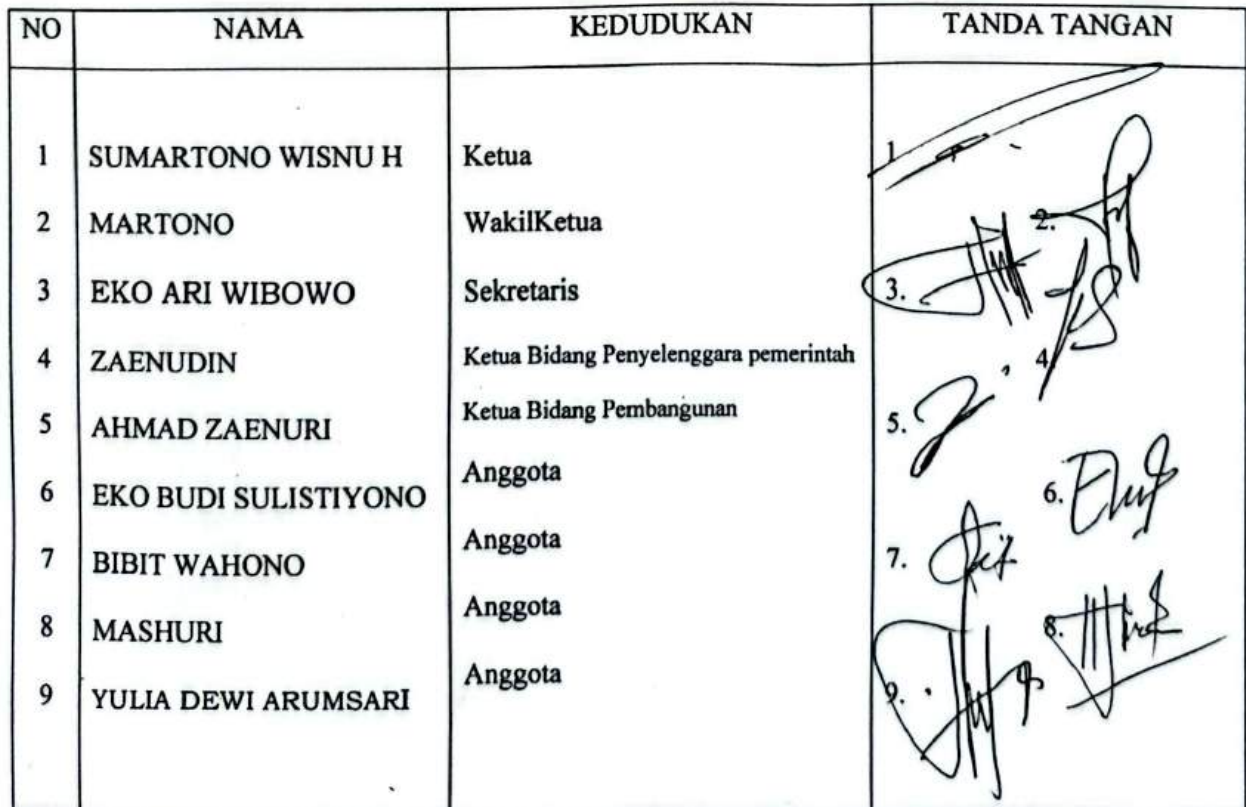 NO NAMA KEDUDUKAN TANDA TANGAN
1 SUMARTONO WISNU H Ketua 1
2 MARTONO WakilKetua 2.
3 EKO ARI WIBOWO Sekretaris 3.
4 ZAENUDIN Ketua Bidang Penyelenggara pemerintah 4.
5 AHMAD ZAENURI Ketua Bidang Pembangunan 5.
6 EKO BUDI SULISTIYONO Anggota 6.
7 BIBIT WAHONO Anggota 7.
8 MASHURI Anggota 8.
9 YULIA DEWI ARUMSARI Anggota 9.